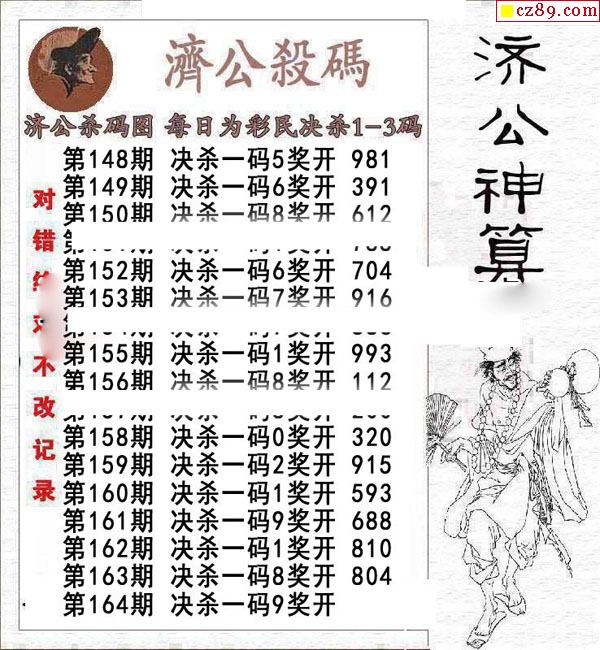 cz89.com
濟公殺碼
济公杀码图 每日为彩民决杀1-3码
第148期 决杀一码5奖开 981
第149期 决杀一码6奖开 391
第150期 决杀一码8奖开 612
第152期 决杀一码6奖开 704
第153期 决杀一码7奖开 916
第155期 决杀一码1奖开 993
第156期 决杀一码8奖开 112
第158期 决杀一码0奖开 320
第159期 决杀一码2奖开 915
第160期 决杀一码1奖开 593
第161期 决杀一码9奖开 688
第162期 决杀一码1奖开 810
第163期 决杀一码8奖开 804
第164期 决杀一码9奖开
对错 不改记录
济公神算